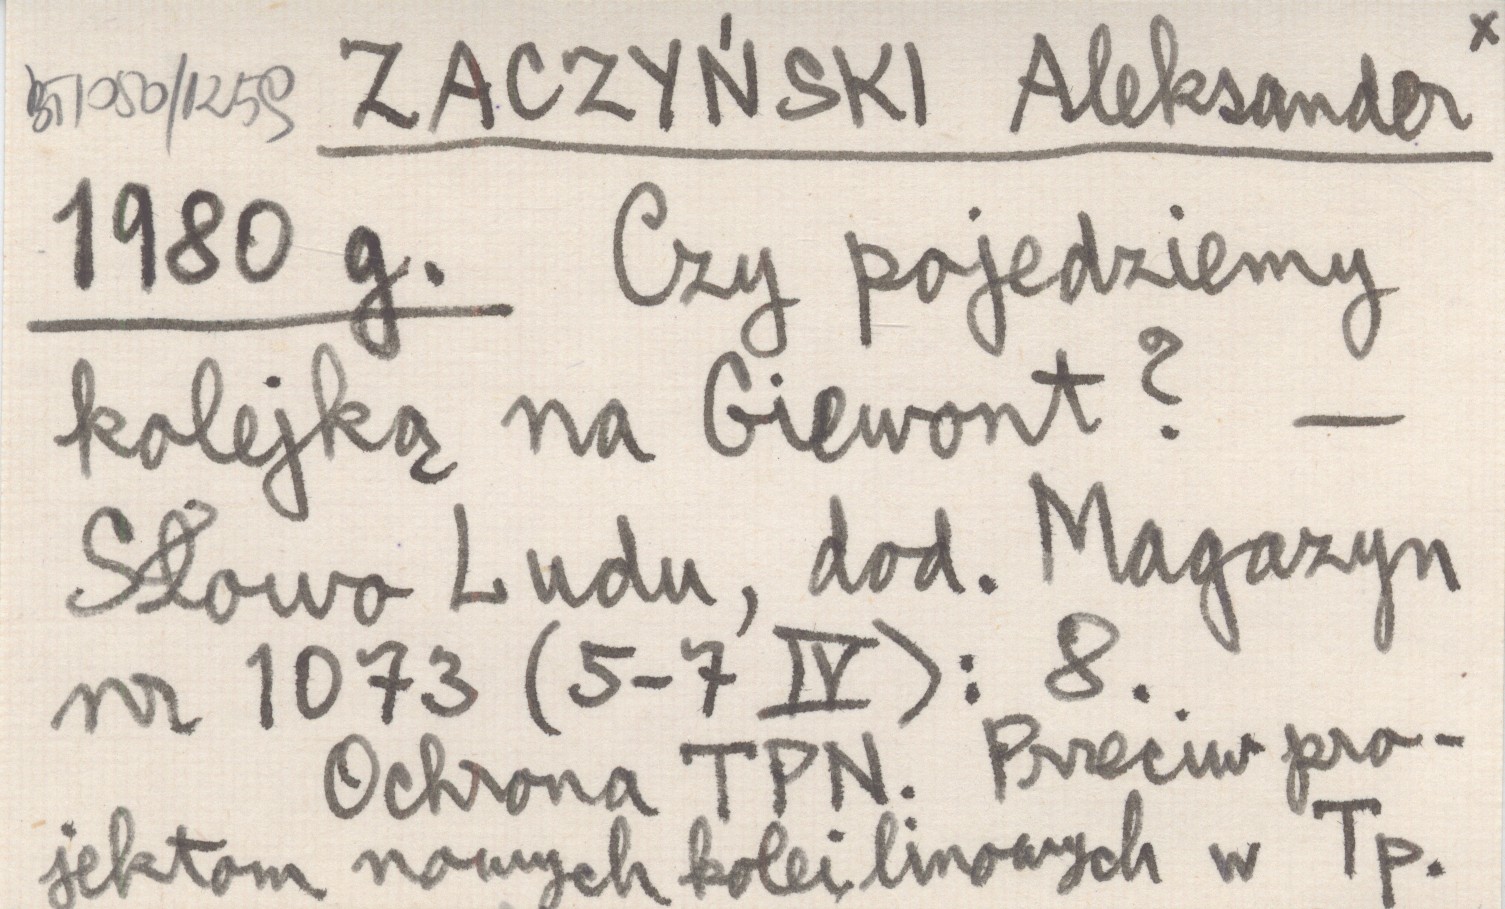 ZACZYŃSKI Aleksander x
1980 g. Czy pojedziemy
kolejką na Giewont? —
Słowo Ludu, dod. Magazyn
nr 1073 (5-7 IV): 8.
Ochrona TPN. Przeciw pro-
jektom nowych kolei linowych w Tp.